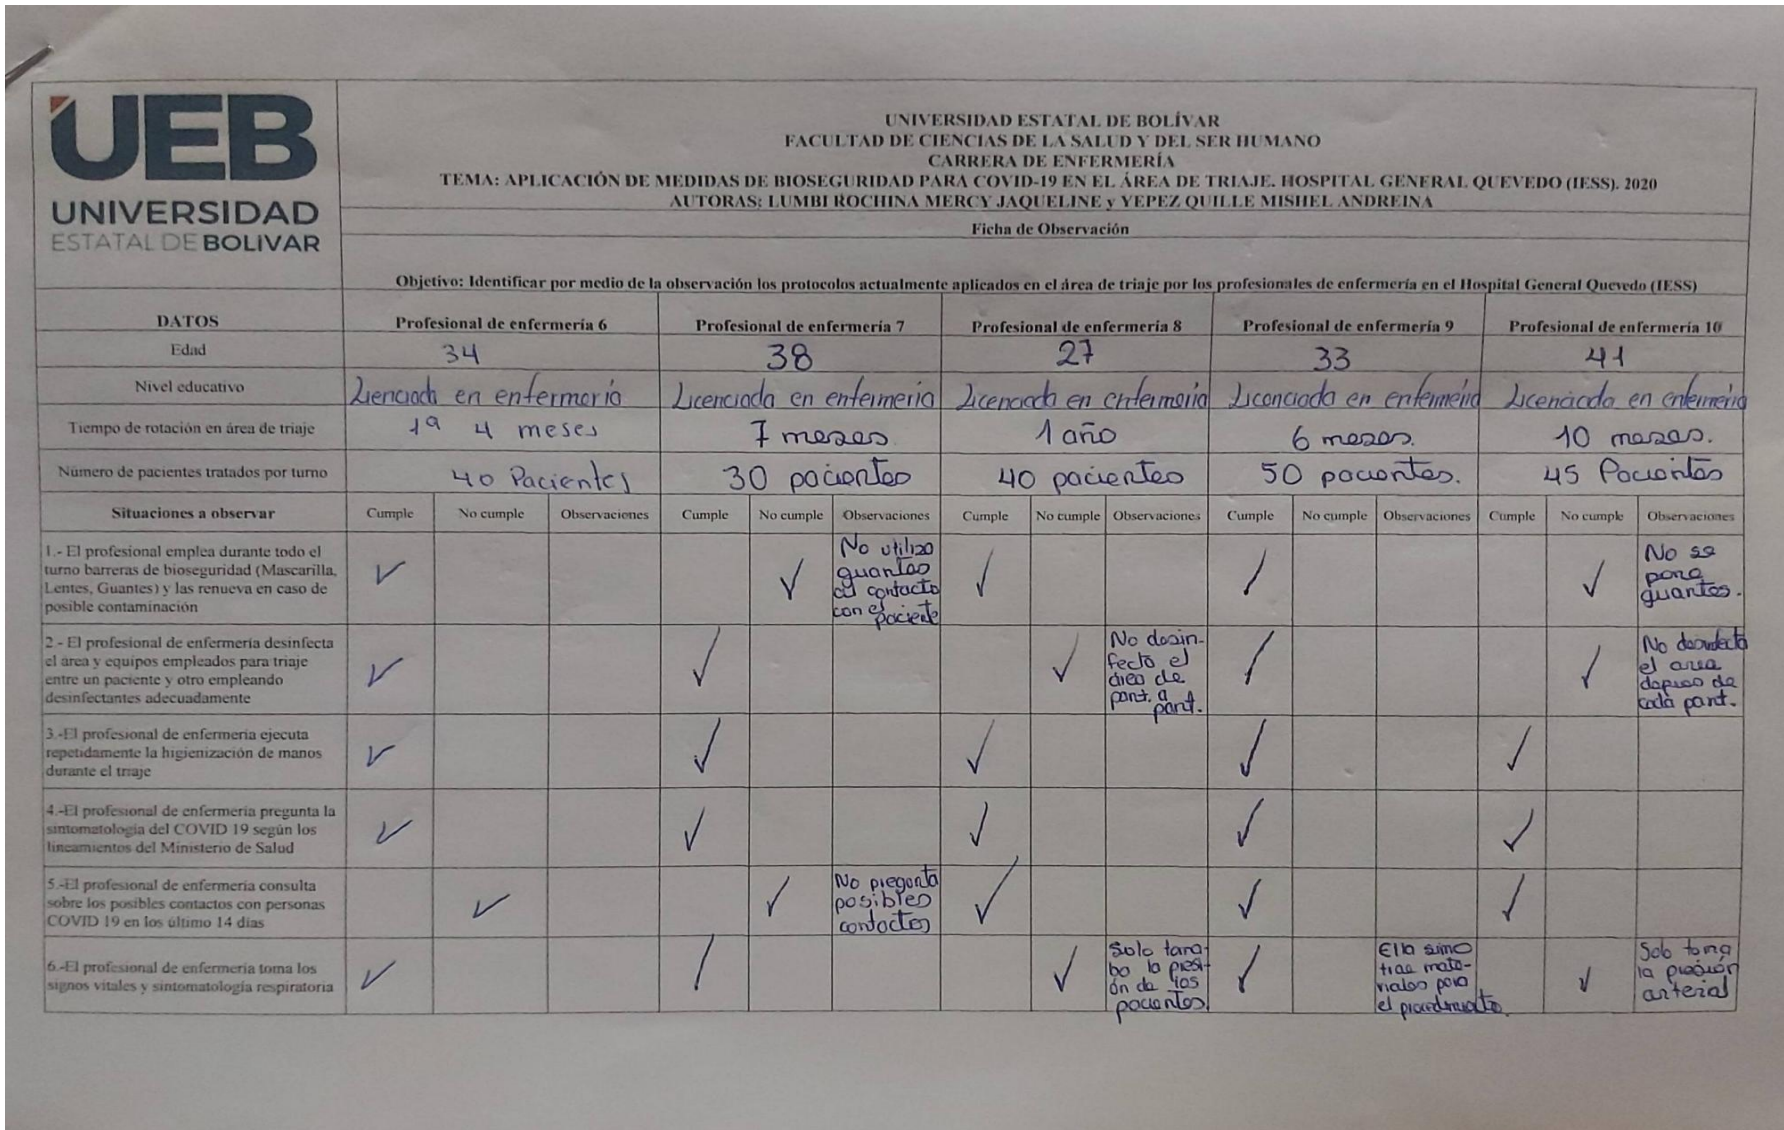 UEB
UNIVERSIDAD
ESTATAL DE BOLIVAR
UNIVERSIDAD ESTATAL DE BOLÍVAR
FACULTAD DE CIENCIAS DE LA SALUD Y DEL SER HUMANO
CARRERA DE ENFERMERÍA
TEMA: APLICACIÓN DE MEDIDAS DE BIOSEGURIDAD PARA COVID-19 EN EL ÁREA DE TRIAJE. HOSPITAL GENERAL QUEVEDO (IESS). 2020
AUTORAS: LUMBI ROCHINA MERCY JAQUELINE y YEPEZ QUILLE MISHEL ANDREINA
Ficha de Observación
Objetivo: Identificar por medio de la observación los protocolos actualmente aplicados en el área de triaje por los profesionales de enfermería en el Hospital General Quevedo (IESS)
DATOS Profesional de enfermería 6 Profesional de enfermería 7 Profesional de enfermería 8 Profesional de enfermería 9 Profesional de enfermería 10
Edad 34 38 27 33 41
Nivel educativo Licenciada en enfermeria Licenciada en enfermeria Licenciada en enfermeria Licenciada en enfermeria Licenciada en enfermeria
Tiempo de rotación en área de triaje 1a 4 meses 7 meses 1 año 6 meses. 10 meses.
Número de pacientes tratados por turno 40 Pacientes 30 pacientes 40 pacientes 50 pacientes. 45 Pacientes
Situaciones a observar Cumple No cumple Observaciones Cumple No cumple Observaciones Cumple No cumple Observaciones Cumple No cumple Observaciones Cumple No cumple Observaciones
1.- El profesional emplea durante todo el
turno barreras de bioseguridad (Mascarilla,
Lentes, Guantes) y las renueva en caso de
posible contaminación
✓ ✓
No utiliza
guantes
al contacto
con el
paciente
✓ ✓ ✓
No se
pone
guantes.
2 - El profesional de enfermería desinfecta
el área y equipos empleados para triaje
entre un paciente y otro empleando
desinfectantes adecuadamente
✓ ✓ ✓
No desin-
fecta el
área de
pant. a
pant.
✓ ✓
No desinfecta
el area
depues de
cada pant.
3.-El profesional de enfermería ejecuta
repetidamente la higienización de manos
durante el triaje
✓ ✓ ✓ ✓ ✓
4.-El profesional de enfermería pregunta la
sintomatología del COVID 19 según los
lineamientos del Ministerio de Salud
✓ ✓ ✓ ✓ ✓
5.-El profesional de enfermería consulta
sobre los posibles contactos con personas
COVID 19 en los último 14 días
✓ ✓
No pregunta
posibles
contactos
✓ ✓ ✓
6.-El profesional de enfermería toma los
signos vitales y sintomatología respiratoria
✓ ✓ ✓
Solo toma-
ba la presi-
ón de los
pacientes.
✓
Ella
trae mate-
riales para
el procedimiento.
✓
Solo toma
la presión
arterial